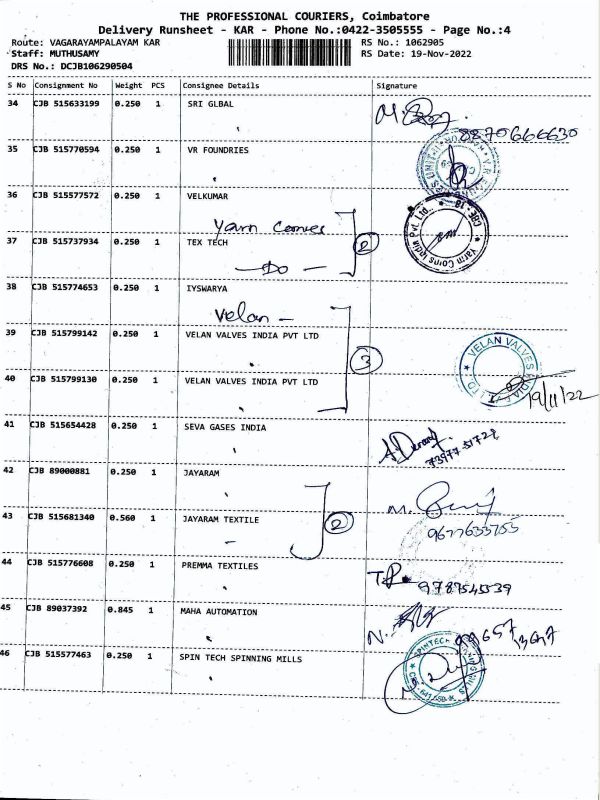 THE PROFESSIONAL COURIERS, Coimbatore
Delivery Runsheet - KAR - Phone No.:0422-3505555 - Page No.:4
Route: VAGARAYAMPALAYAM KAR RS No.: 1062905
Staff: MUTHUSAMY RS Date: 19-Nov-2022
DRS No.: DCJB106290504
S No Consignment No Weight PCS Consignee Details Signature
34 CJB 515633199 0.250 1 SRI GLBAL
8870666630
35 CJB 515770594 0.250 1 VR FOUNDRIES
36 CJB 515577572 0.250 1 VELKUMAR
Yarn Cornes
37 CJB 515737934 0.250 1 TEX TECH
2
Yarm Corns India Pvt Ltd. CBE - 18
— Do —
38 CJB 515774653 0.250 1 IYSWARYA
Velan —
39 CJB 515799142 0.250 1 VELAN VALVES INDIA PVT LTD
3
VELAN VALVES INDIA P. LTD.
40 CJB 515799130 0.250 1 VELAN VALVES INDIA PVT LTD
19/11/22
41 CJB 515654428 0.250 1 SEVA GASES INDIA
42 CJB 89000881 0.250 1 JAYARAM
43 CJB 515681340 0.560 1 JAYARAM TEXTILE
2
9677633755
44 CJB 515776608 0.250 1 PREMMA TEXTILES
9787545539
45 CJB 89037392 0.845 1 MAHA AUTOMATION
46 CJB 515577463 0.250 1 SPIN TECH SPINNING MILLS